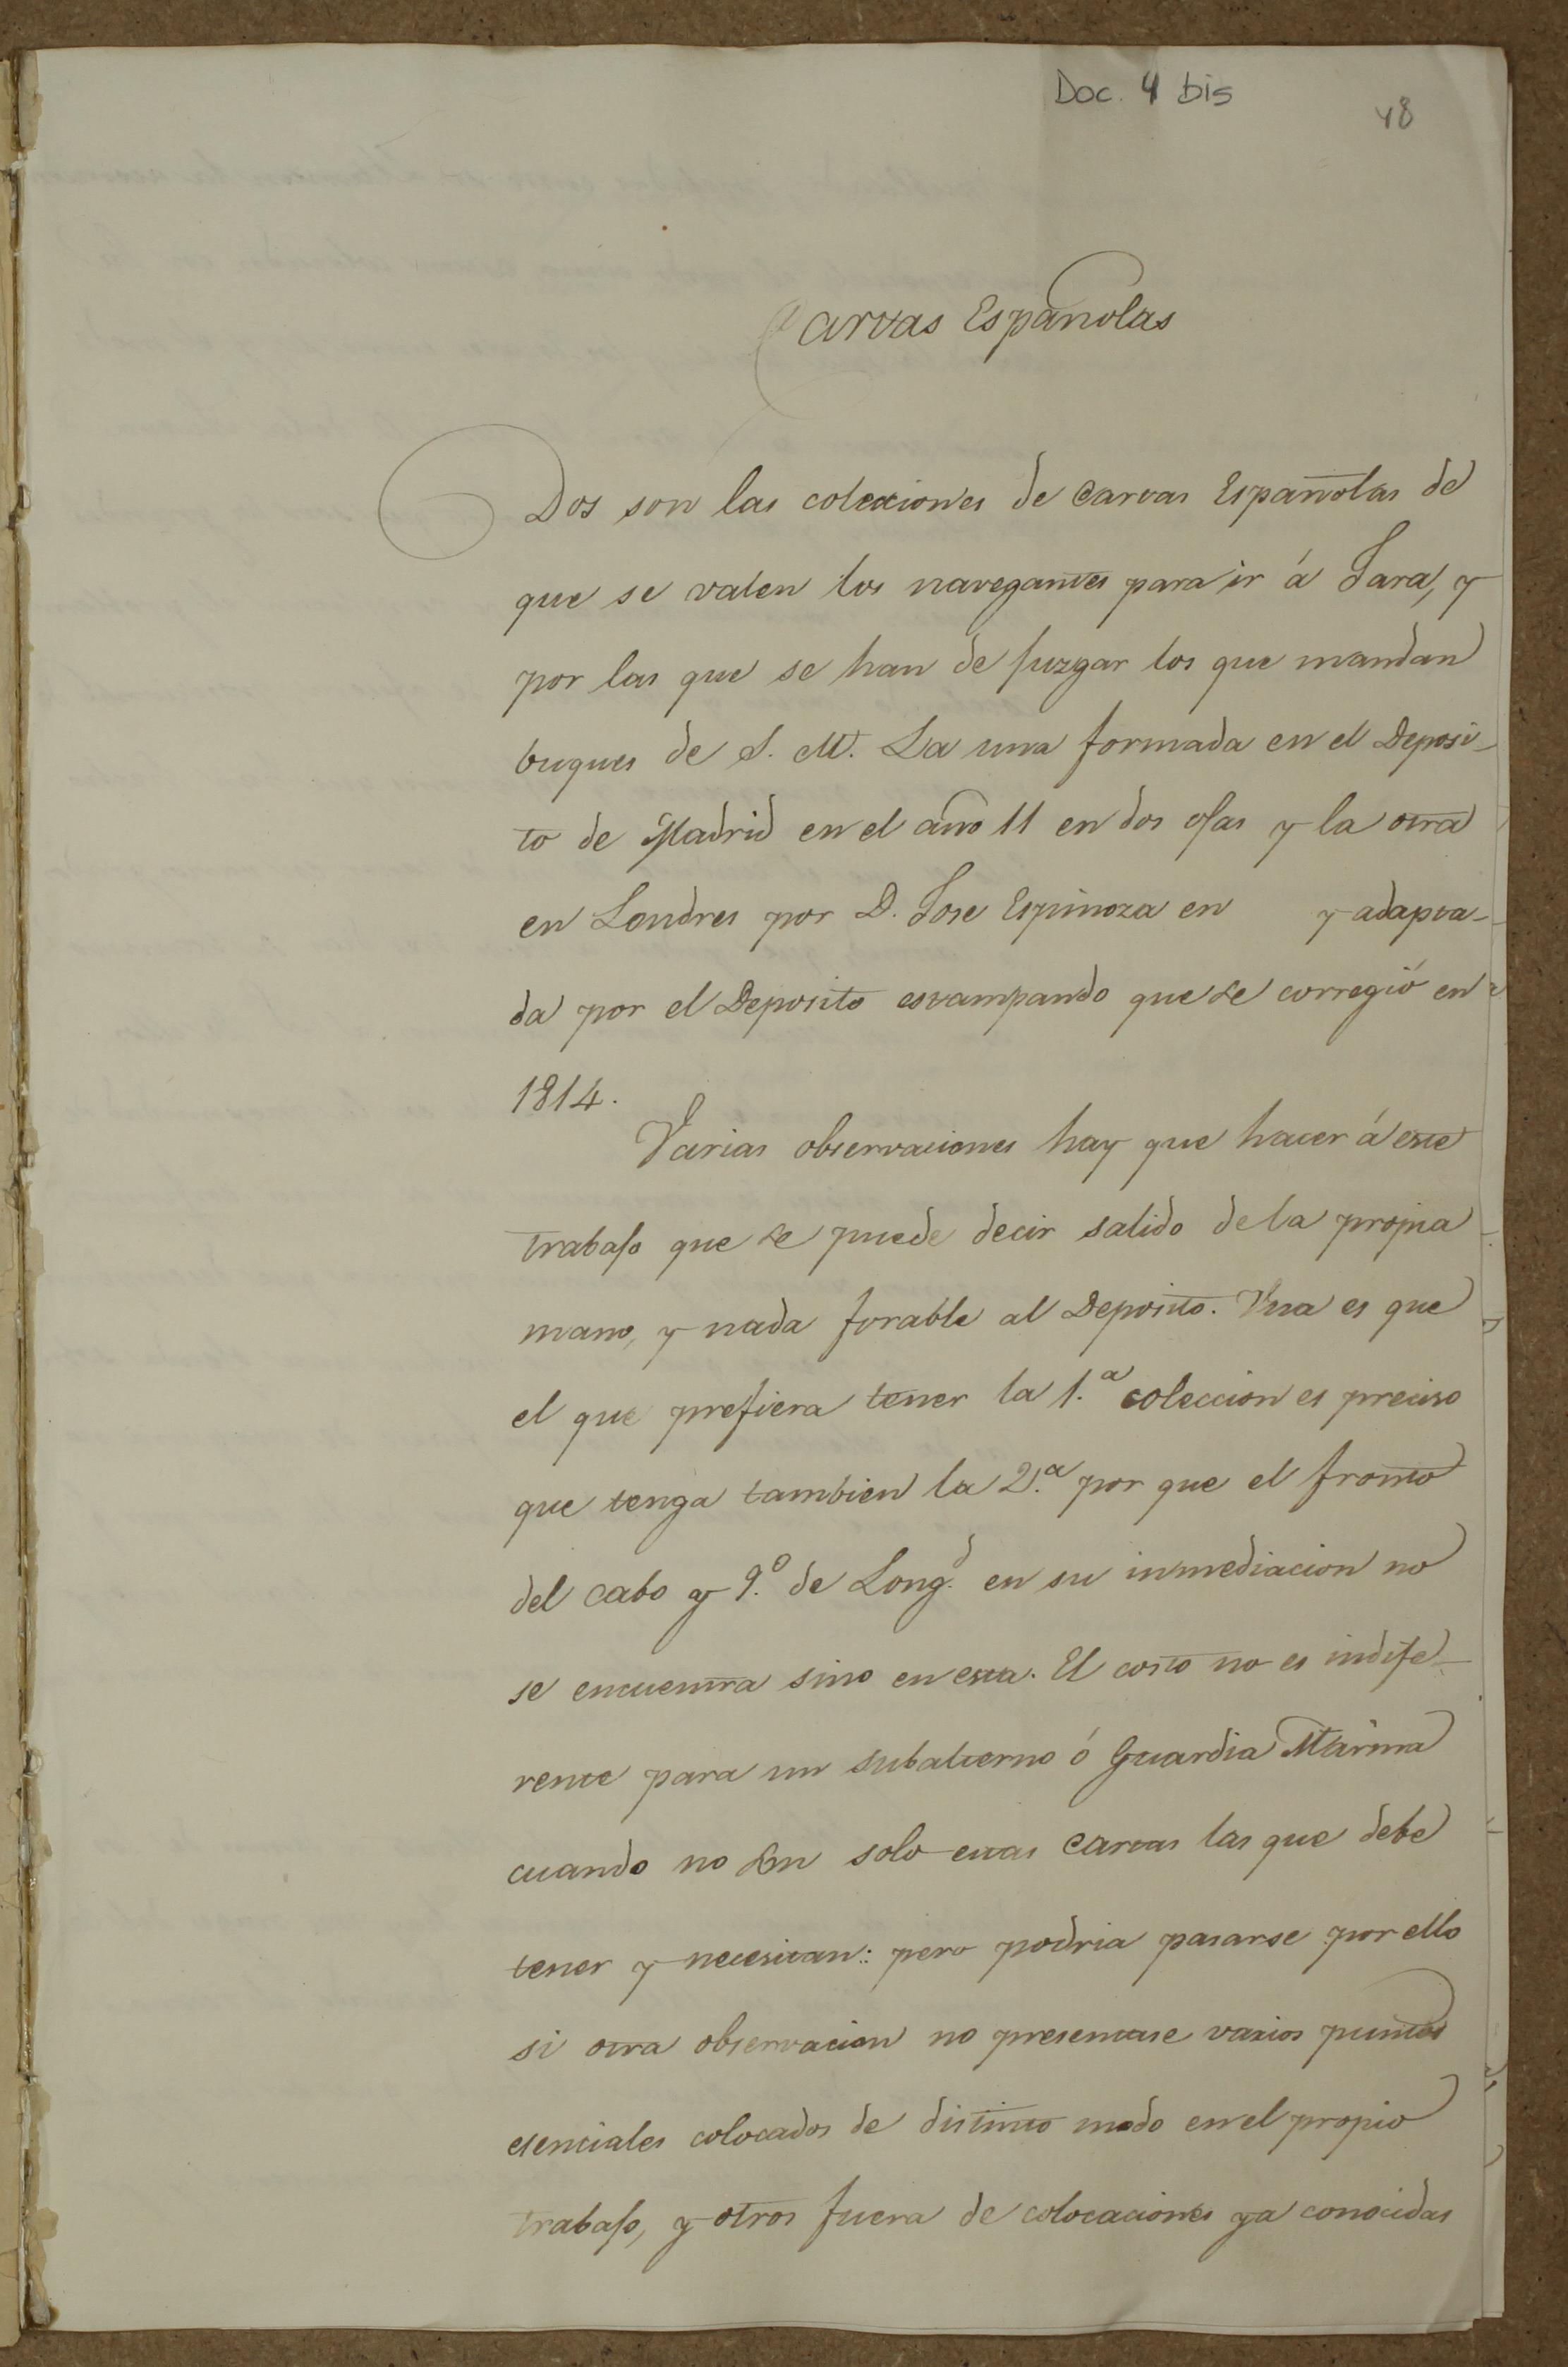 Doc. 4 bis
48
Cartas Españolas
Dos son las colecciones de Cartas Españolas de
que se valen los navegantes para ir á Java, y
por las que se han de juzgar los que mandan
buques de S. M. La una formada en el Deposi-
to de Madrid en el año 11 en dos ojas y la otra
en Londres por D. Jose Espinoza en y adapta-
da por el Deposito estampando que se corregió en
1814.
Varias observaciones hay que hacer á este
trabajo que se puede decir salido de la propia
mano, y nada forable al Deposito. Una es que
el que prefiera tener la 1.ª coleccion es preciso
que tenga tambien la 2.ª por que el fronto
del cabo y 9.º de Long.d en su inmediacion no
se encuentra sino en esta. El costo no es indife-
rente para un subalterno ó Guardia Marina
cuando no son solo estas Cartas las que debe
tener y necesitan: pero podria pasarse por ello
si otra observacion no presentase varios puntos
esenciales colocados de distinto modo en el propio
trabajo, y otros fuera de colocaciones ya conocidas